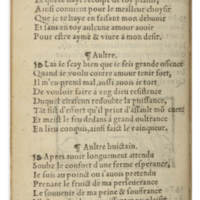 Ainsi comment pour le meilleur choysir
Que je te haye en faisant mon debuoir
Et lautant toy aulcune amour auoir
Pour estre aymé & viure a mon desir.
¶ Aultre.
Lai ie scay bien que ie feis grande offence
Quand ie voulu contre amour tenir fort,
Il m'en prend mal, aussi auois ie tort
De vouloir faire a ung dieu resistence
Duquel chascun redoubte la puissance,
Tât fist d'effort qu'il print d'assault mõ cueur
Et meist le feu dedans a grand oultrance
En lieu conquis, ainsi fait le vainqueur.
¶ Aultre huictain.
Apres auoir longuement attendu
Soubz le confort d'une ferme esperance,
Je suis au point ou i'auois pretendu
Prendre le fruict de ma perseuerance
Le souuenir de ma peine & souffrance